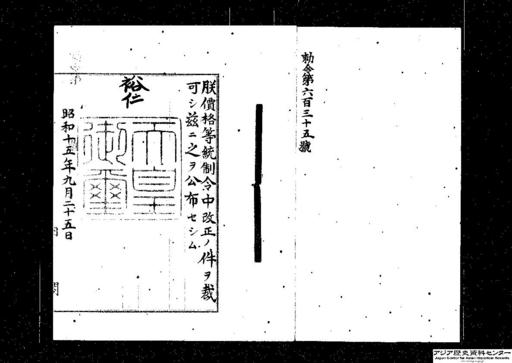 勅令第六百三十五號
朕價格等統制令中改正ノ件ヲ裁
可シ玆ニ之ヲ公布セシム
裕仁
天皇
御璽
昭和十五年九月二十五日
アジア歴史資料センター
Japan Center for Asian Historical Records